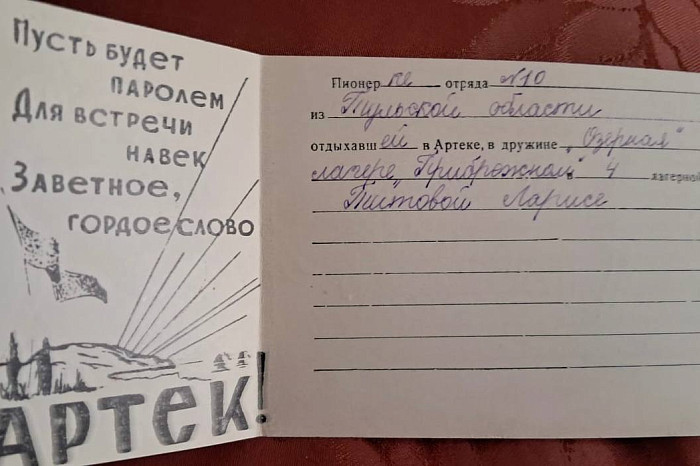 Пусть будет
паролем
Для встречи
навек
Заветное,
гордое слово
АРТЕК!
Пионерке отряда №10
из Тульской области
отдыхавшей в Артеке, в дружине „Озерная"
лагере „Прибрежной" в 4 лагерной
Титовой Ларисе